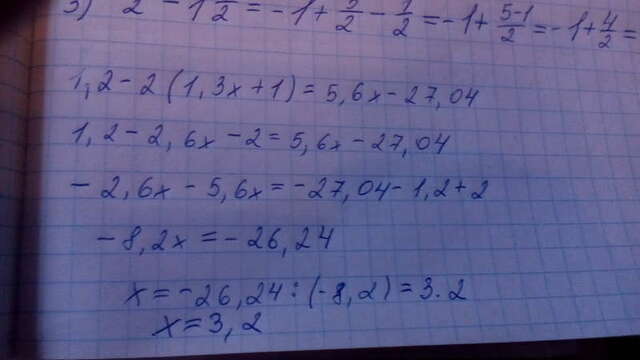 3) 2 - 1 1/2 = -1 + 5/2 - 1/2 = -1 + (5-1)/2 = -1 + 4/2 =
1,2 - 2 (1,3x + 1) = 5,6x - 27,04
1,2 - 2,6x - 2 = 5,6x - 27,04
- 2,6x - 5,6x = -27,04 - 1,2 + 2
- 8,2x = - 26,24
x = -26,24 : (-8,2) = 3.2
x = 3,2